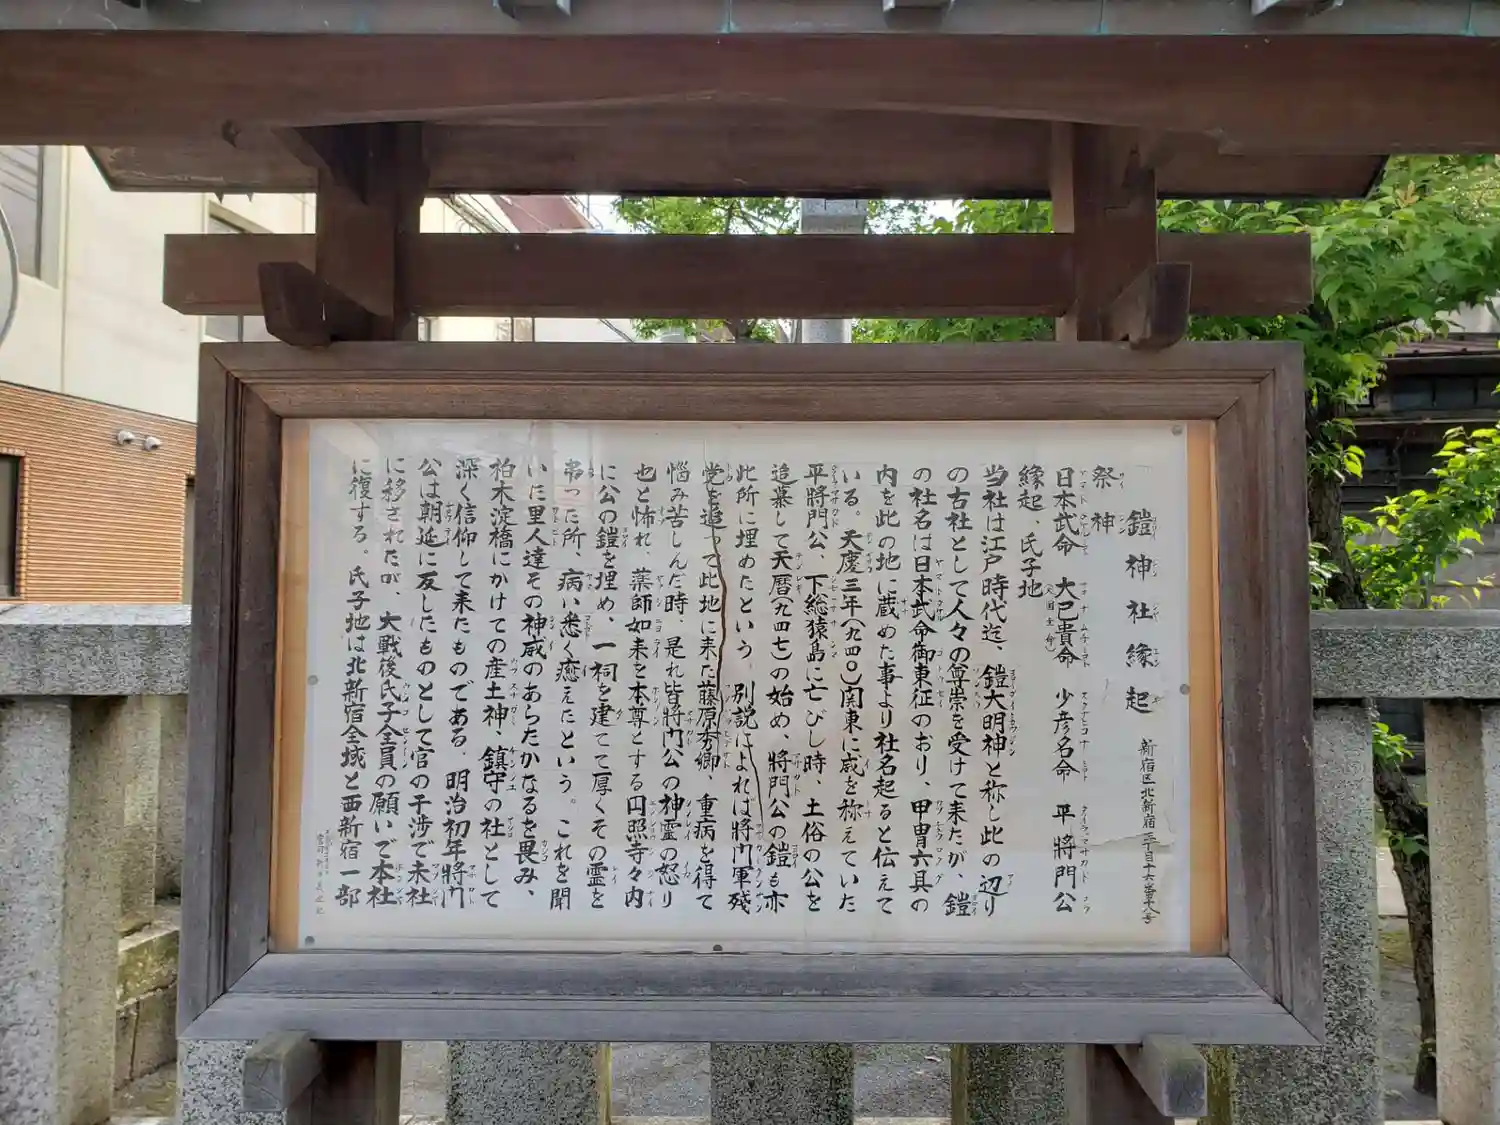 鎧神社縁起 新宿区北新宿三丁目十六番十八号
祭神
日本武命 大己貴命 少彦名命 平將門公
縁起、氏子地
当社は江戸時代迄、鎧大明神と称し此の辺り
の古社として人々の尊崇を受けて来たが、鎧
の社名は日本武命御東征のおり、甲冑六具の
内を此の地に蔵めた事より社名起ると伝えて
いる。天慶三年(九四〇)関東に威を称えていた
平將門公、下総猿島に亡びし時、土俗の公を
追慕して天暦(九四七)の始め、將門公の鎧も亦
此所に埋めたという。別説によれば將門軍残
党を追って此地に来た藤原秀郷、重病を得て
悩み苦しんだ時、是れ皆將門公の神霊の怒り
也と怖れ、薬師如来を本尊とする円照寺々内
に公の鎧を埋め、一祠を建てて厚くその霊を
弔った所、病い悉く癒えたという。これを聞
いた里人達その神威のあらたかなるを畏み、
柏木淀橋にかけての産土神、鎮守の社として
深く信仰して来たものである。明治初年將門
公は朝廷に反したものとして官の干渉で末社
に移されたが、大戦後氏子全員の願いで本社
に復する。氏子地は北新宿全域と西新宿一部